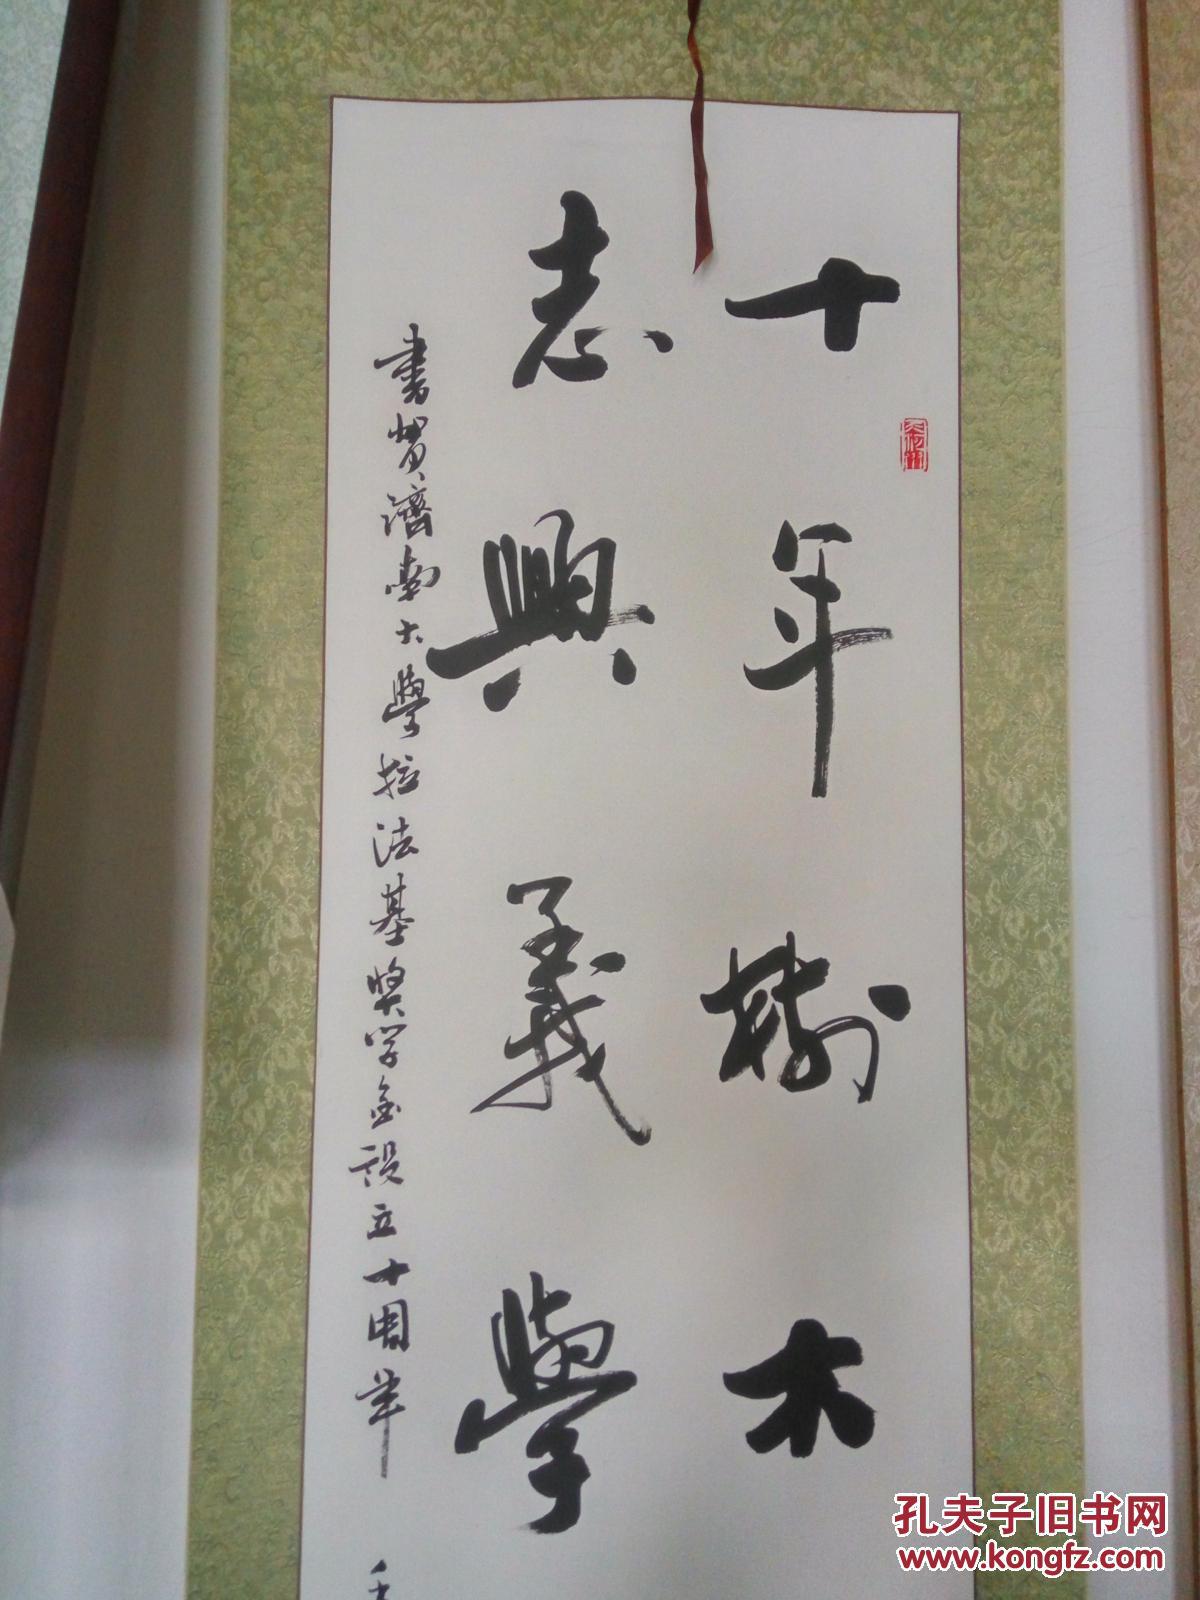 十年樹木
志興義學
書賀濟南大學拉法基奖学金設立十周年
孔夫子旧书网
www.kongfz.com